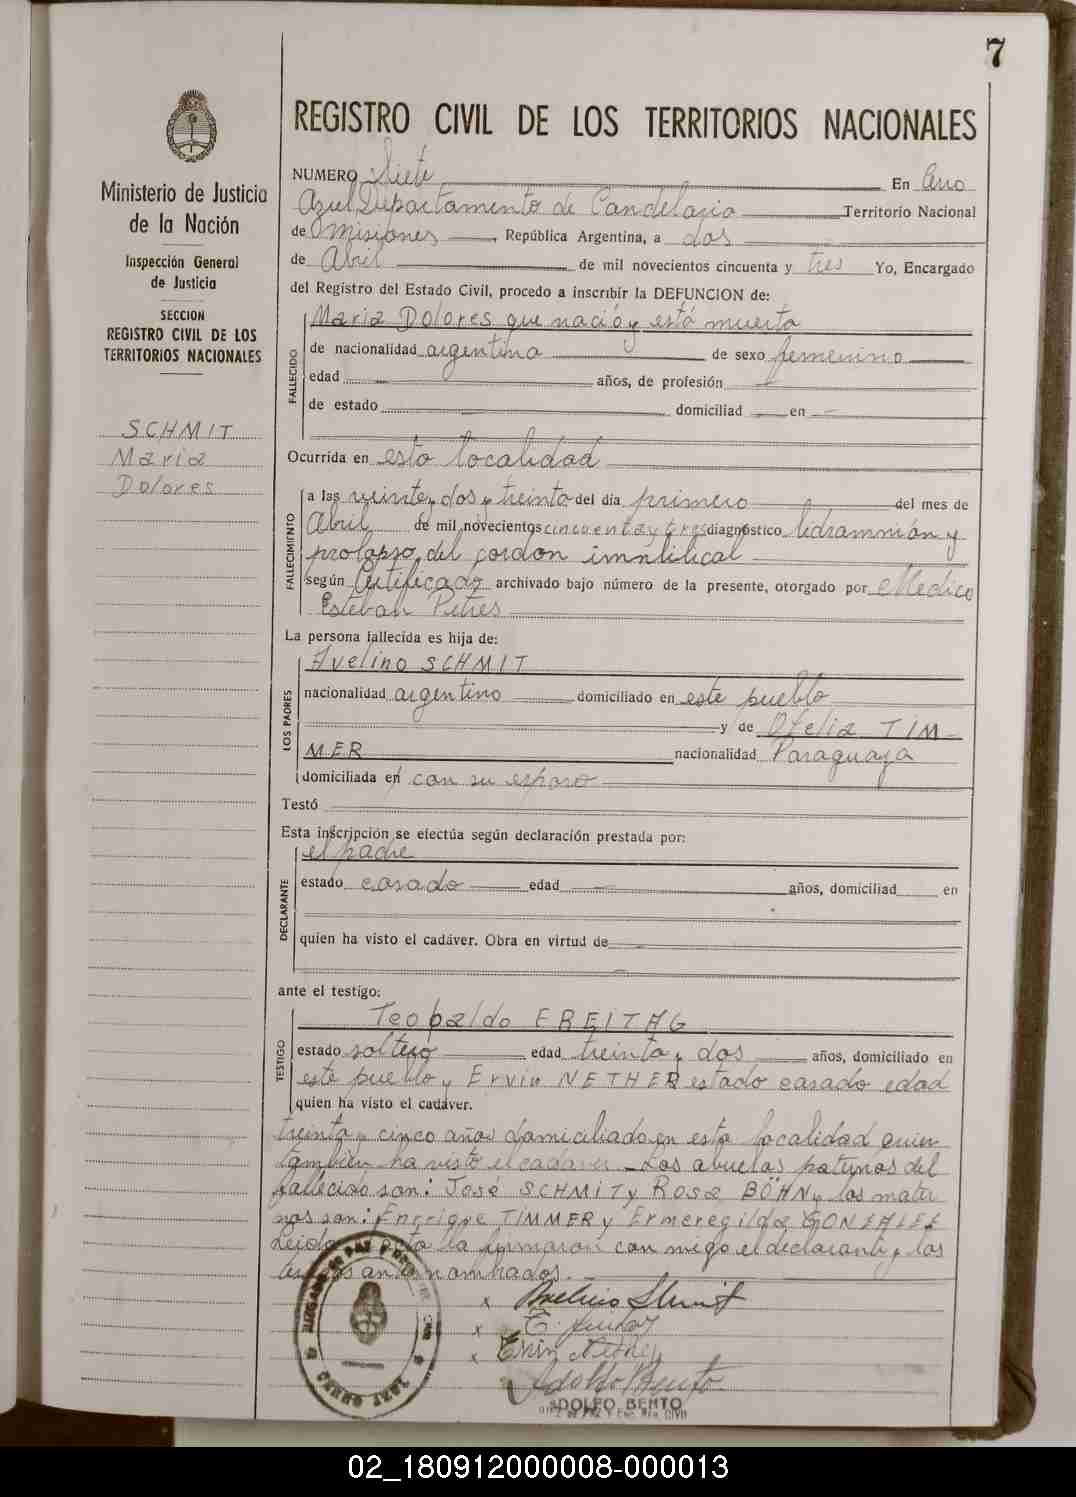 7
REGISTRO CIVIL DE LOS TERRITORIOS NACIONALES
Ministerio de Justicia
de la Nación
Inspección General
de Justicia
SECCION
REGISTRO CIVIL DE LOS
TERRITORIOS NACIONALES
SCHMIT
Maria
Dolores
NUMERO Siete En Arro
Azul Departamento de Candelaria Territorio Nacional
de Misiones, República Argentina, a dos
de Abril de mil novecientos cincuenta y tres Yo, Encargado
del Registro del Estado Civil, procedo a inscribir la DEFUNCION de:
FALLECIDO
Maria Dolores que nació y está muerta
de nacionalidad argentina de sexo femenino
edad años, de profesión
de estado domiciliad en
Ocurrida en esta localidad
FALLECIMIENTO
a las veinte y dos y treinta del día primero del mes de
Abril de mil novecientos cincuenta y tres diagnóstico hidramnión y
prolapso del cordon
según Certificado archivado bajo número de la presente, otorgado por Medico
Esteban Petres
La persona fallecida es hija de:
LOS PADRES
Avelino SCHMIT
nacionalidad argentino domiciliado en este pueblo
y de Ofelia TIM-
MER nacionalidad Paraguaya
domiciliada en con su esposo
Testó
Esta inscripción se efectúa según declaración prestada por:
DECLARANTE
el padre
estado casado edad años, domiciliad en
quien ha visto el cadáver. Obra en virtud de
ante el testigo:
TESTIGO
Teobaldo FREITAG
estado soltero edad treinta y dos años, domiciliado en
este pueblo y Ervin NETHER estado casado edad
quien ha visto el cadáver.
treinta y cinco años domiciliado en esta localidad quien
también ha visto el cadaver - Los abuelos paternos del
fallecido son: José SCHMIT y Rosa BÖHN y los mater
nos son: Enrrique TIMMER y Ermeregilda GONZALEZ
Leida la firmaron con migo el declarante y los
nombrados.
x Avelino Schmit
x
x Ervin Nether
Adolfo Bento
ADOLFO BENTO
JUEZ DE PAZ Y Enc. Reg. CIVIL
JUZGADO DE PAZ
02_180912000008-000013